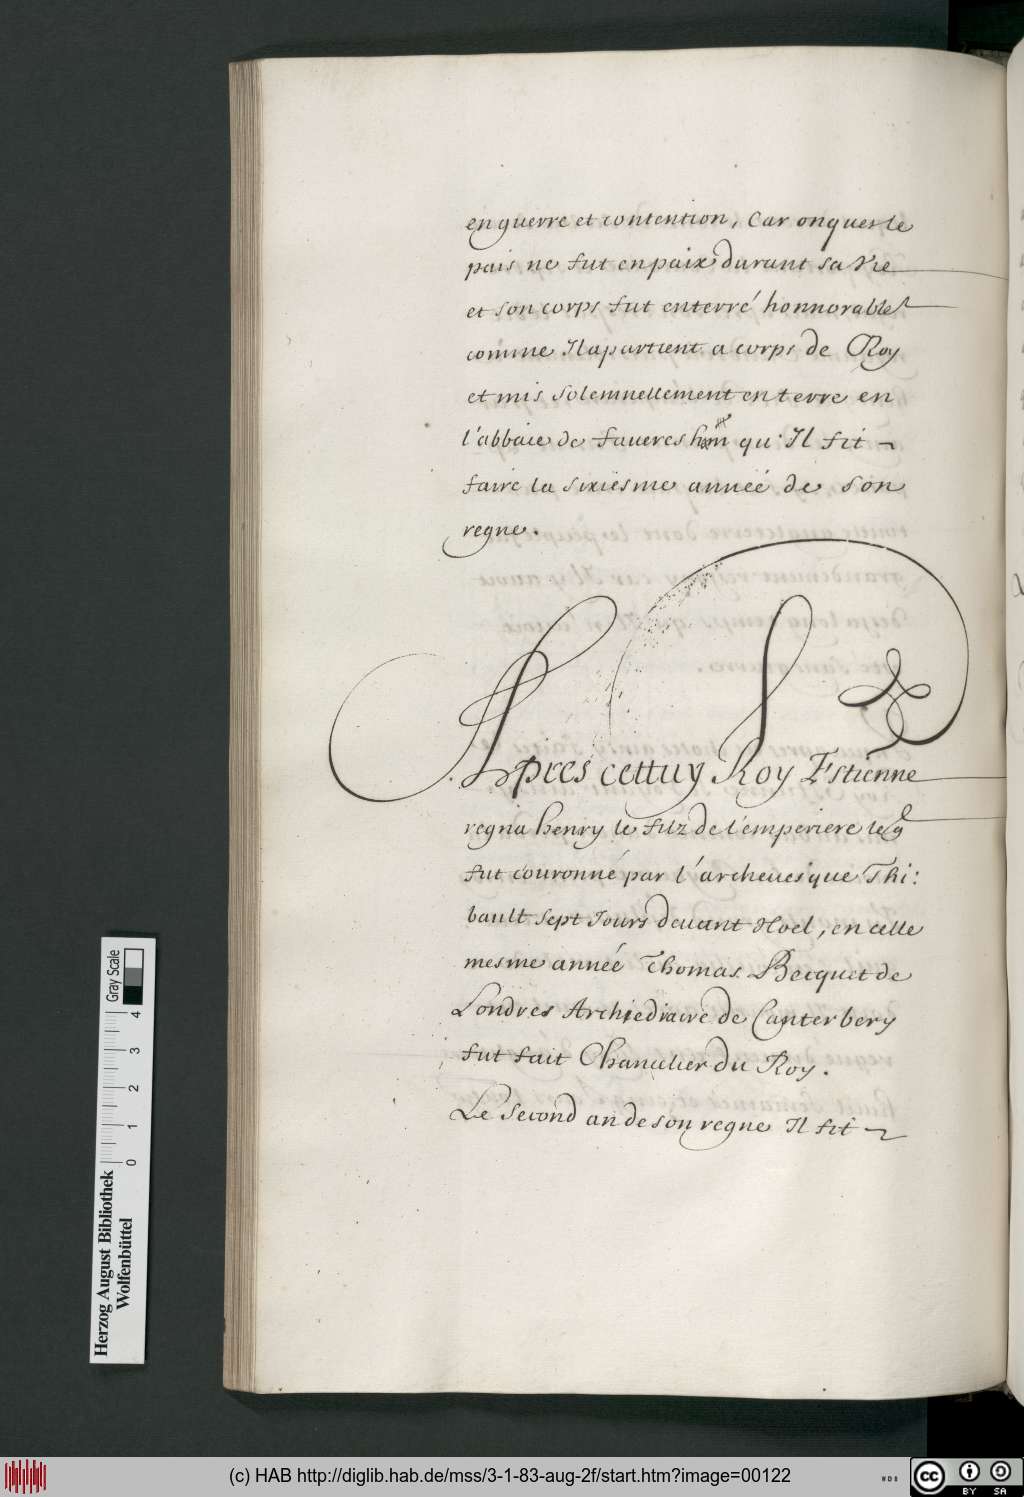 en guerre et contention, Car onques le
pais ne fut en paix durant sa Vie
et son corps fut enterré honnorablet
comme Il apartient a corps de Roy
et mis solemnellement en terre en
l'abbaie de faveres qu'Il fit
faire la sixiesme anneé de son
regne.
Apres cettuy Roy Estienne
regna henry le filz de l'emperiere leq
fut couronné par l'archeuesque Thi:
bault sept Jours deuant Noel, en celle
mesme anneé Thomas Becquet de
Londres Archiediacre de Canterbery
fut fait Chancelier du Roy.
Le second an de son regne Il fit
Gray Scale
4
3
2
1
0
Herzog August Bibliothek
Wolfenbüttel
(c) HAB http://diglib.hab.de/mss/3-1-83-aug-2f/start.htm?image=00122
cc
BY SA